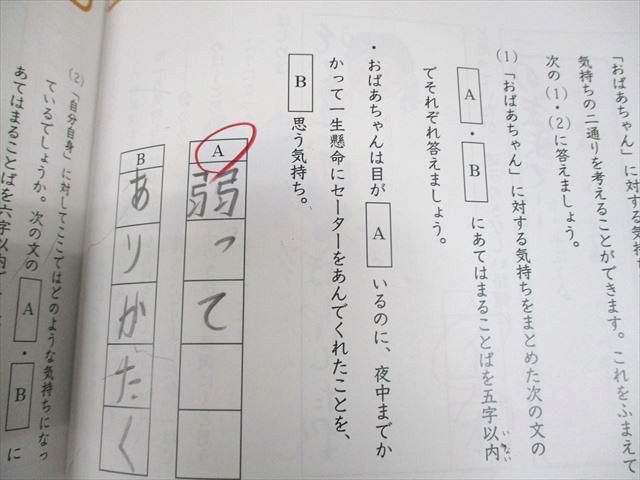 「おばあちゃん」に対する気持
気持ちの二通りを考えることができます。これをふまえて
次の(1)・(2)に答えましょう。
(1)「おばあちゃん」に対する気持ちをまとめた次の文の
A・Bにあてはまることばを五字以内
いない
でそれぞれ答えましょう。
・おばあちゃんは目がAいるのに、夜中までか
かって一生懸命にセーターをあんでくれたことを、
B思う気持ち。
A
弱って
B
ありがたく
(2)「自分自身」に対してここではどのような気持ちになっ
ているでしょうか。次の文のA・Bに
あてはまることばを六字以内